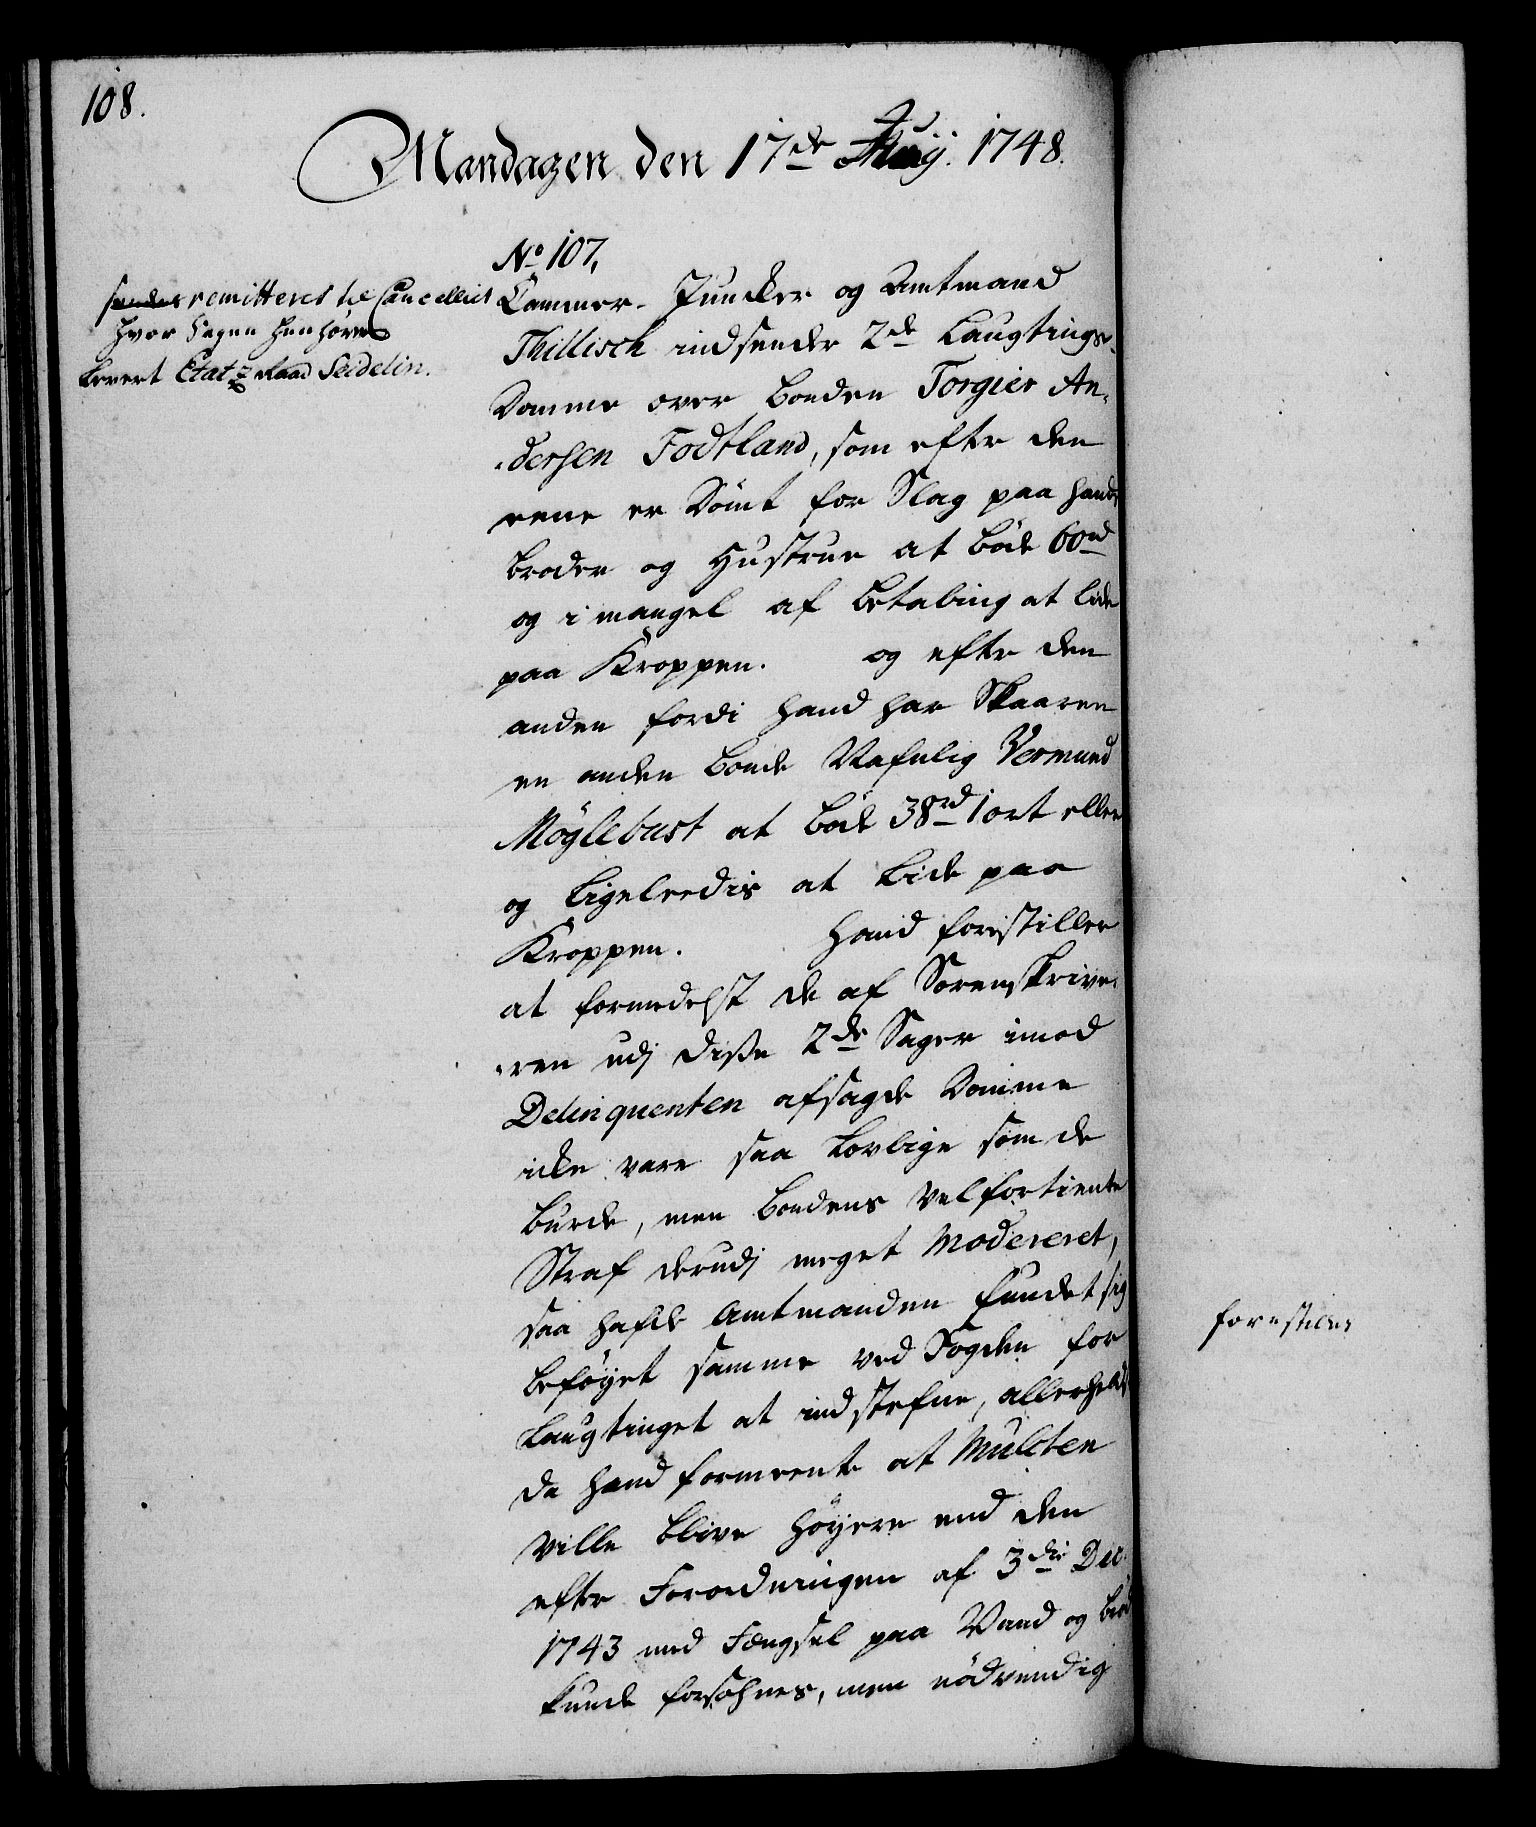 108.
Mandagen den 17de Juny. 1748.
No 107,
remitteres til Cancelliet
hvor Sagen henhører
levert Etatz Raad Seidelin.
Cammer-Juncker og Amtmand
Thillisch indsender 2de Laugtings-
Domme over bonden Torgier An-
dersen Fodtland, som efter den
eene er dömt for Slag paa hands
broder og Hustrue at böde 60rd
og i mangel af betaling at lide
paa Kroppen. og efter den
anden fordi hand har Skaaren
en anden bonde Nafnlig Vermund
Möglebust at böde 38rd 1 ort eller
og ligeleedis at lide paa
Kroppen. Hand forestiller
at formedelst de af Sorenskrive-
ren udj disse 2de Sager imod
Delinquenten afsagde Domme
icke vare saa lovlige som de
burde, men bondens velfortiente
Straf derudj meget modereret,
saa hafde Amtmanden fundet sig
beföyet samme ved Fogden for
Laugtinget at indstefne, allerhelst
da hand formeente at Mulcten
ville blive höyere end den
efter Forordningen af 3die Dec.
1743 med Fængsel paa Vand og bröd
kunde forsohnes, men nödvendig
forestiller